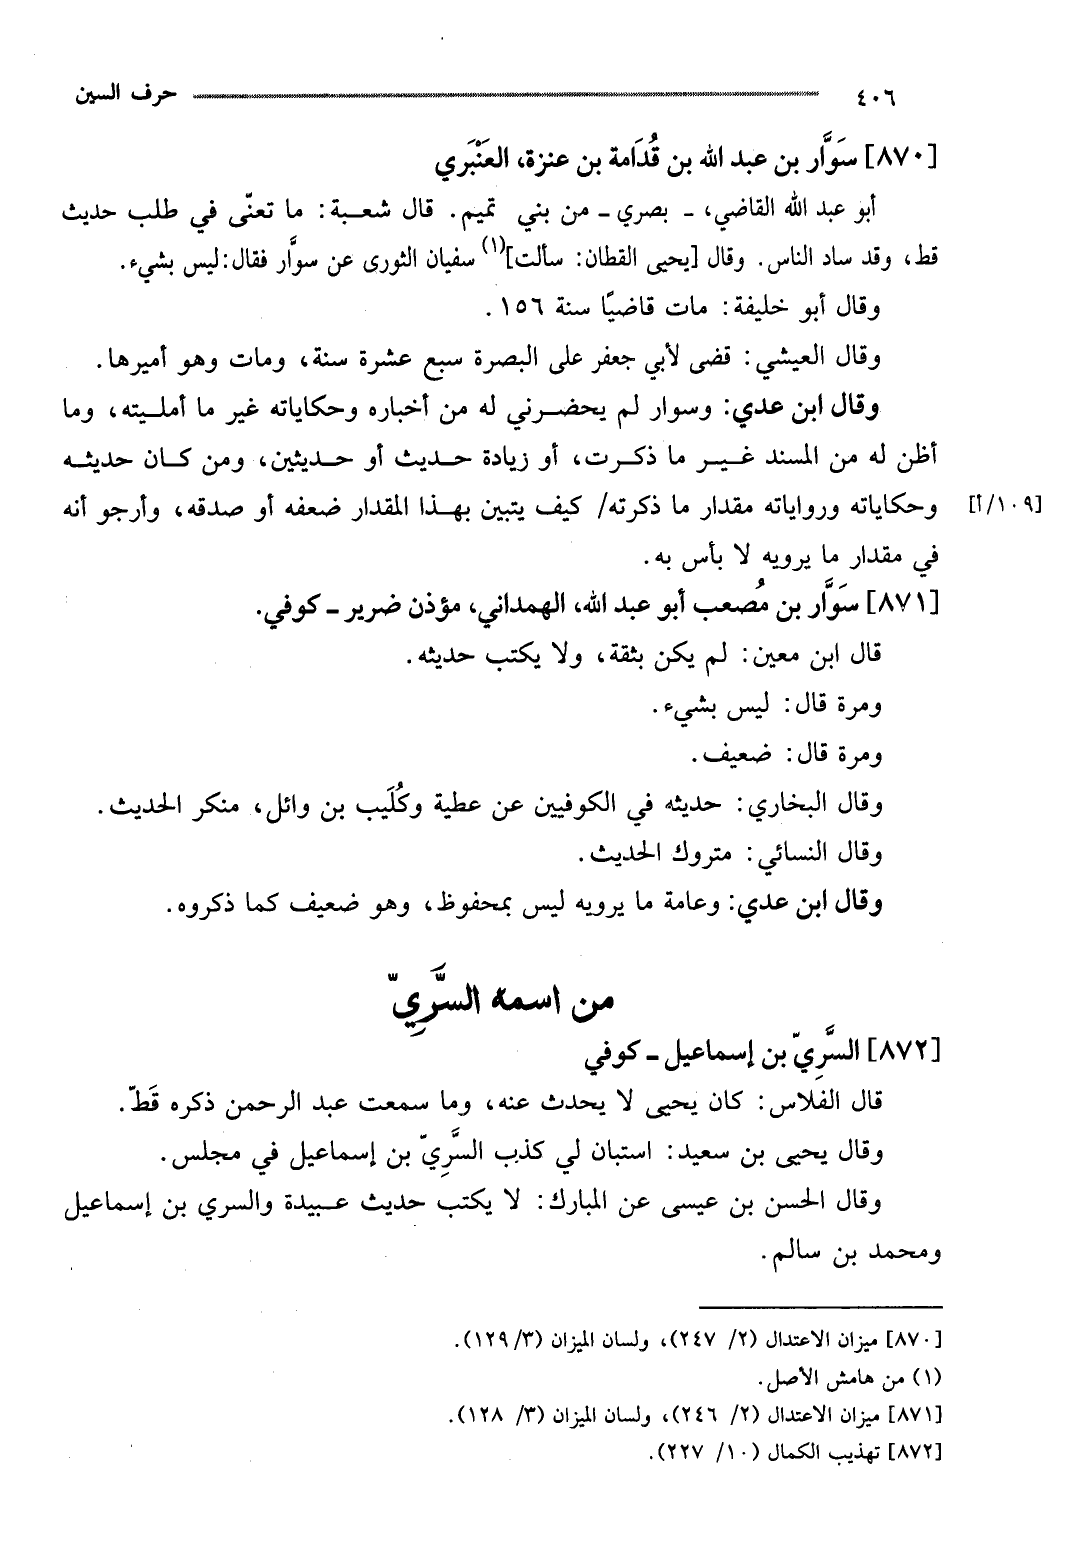 ٤٠٦ حرف السين
[٨٧٠] سَوَّار بن عبد الله بن قُدَامة بن عنزة، العَنْبَري
أبو عبد الله القاضي، ـ بصري ـ من بني تميم. قال شعبة: ما تعنّى في طلب حديث
قط، وقد ساد الناس. وقال [يحيى القطان: سألت](١) سفيان الثورى عن سوَّار فقال: ليس بشيء.
وقال أبو خليفة: مات قاضيًا سنة ١٥٦.
وقال العيشي: قضى لأبي جعفر على البصرة سبع عشرة سنة، ومات وهو أميرها.
وقال ابن عدي: وسوار لم يحضرني له من أخباره وحكاياته غير ما أمليته، وما
أظن له من المسند غير ما ذكرت، أو زيادة حديث أو حديثين، ومن كان حديثه
[١٠٩/أ] وحكاياته ورواياته مقدار ما ذكرته/ كيف يتبين بهذا المقدار ضعفه أو صدقه، وأرجو أنه
في مقدار ما يرويه لا بأس به.
[٨٧١] سَوَّار بن مُصعب أبو عبد الله، الهمداني، مؤذن ضرير ـ كوفي.
قال ابن معين: لم يكن بثقة، ولا يكتب حديثه.
ومرة قال: ليس بشيء.
ومرة قال: ضعيف.
وقال البخاري: حديثه في الكوفيين عن عطية وكُلَيب بن وائل، منكر الحديث.
وقال النسائي: متروك الحديث.
وقال ابن عدي: وعامة ما يرويه ليس بمحفوظ، وهو ضعيف كما ذكروه.
من اسمه السَّرِيّ
[٨٧٢] السَّرِيّ بن إسماعيل ـ كوفي
قال الفلاس: كان يحيى لا يحدث عنه، وما سمعت عبد الرحمن ذكره قَطّ.
وقال يحيى بن سعيد: استبان لي كذب السَّرِيّ بن إسماعيل في مجلس.
وقال الحسن بن عيسى عن المبارك: لا يكتب حديث عبيدة والسري بن إسماعيل
ومحمد بن سالم.
[٨٧٠] ميزان الاعتدال (٢/ ٢٤٧)، ولسان الميزان (٣/ ١٢٩).
(١) من هامش الأصل.
[٨٧١] ميزان الاعتدال (٢/ ٢٤٦)، ولسان الميزان (٣/ ١٢٨).
[٨٧٢] تهذيب الكمال (١٠/ ٢٢٧).